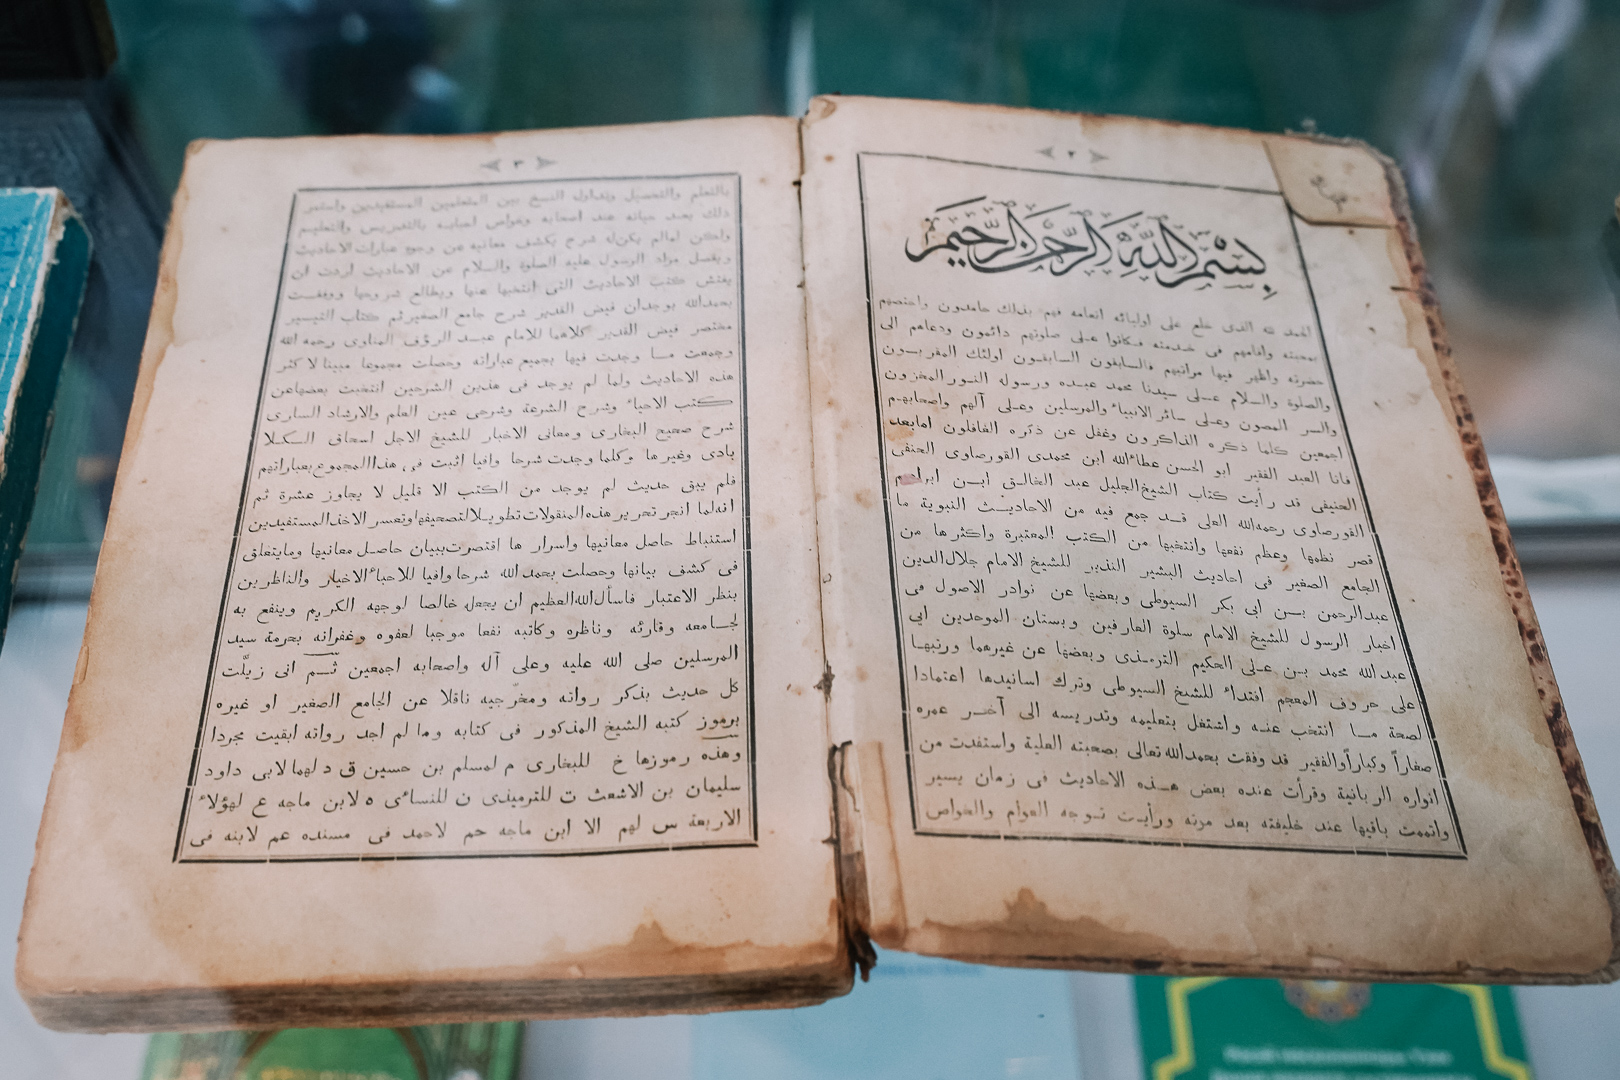 ٢
بسم الله الرحمن الرحيم
الحمد لله الذى خلع على اوليائه انعامه فهم بذلك حامدون واختصهم
بمحبته واقامهم فى خدمته فكانوا على صلوتهم دائمون ودعاهم الى
حضرته واظهر فيها مراتبهم فالسابقون السابقون اولئك المقربون
والصلوة والسلام على سيدنا محمد عبده ورسوله النور المخزون
والسر المصون وعلى سائر الانبياء والمرسلين وعلى آلهم واصحابهم
اجمعين كلما ذكره الذاكرون وغفل عن ذكره الغافلون امابعد
فانا العبد الفقير ابو الحسن عطاءالله ابن محمدى القورصاوى الحنفى
الحنيفى قد رأيت كتاب الشيخ الجليل عبد الخالق ابن ابراهيم
القورصاوى رحمه الله العلى قد جمع فيه من الاحاديث النبوية ما
قصر نظمها وعظم نفعها وانتخبها من الكتب المعتبرة واكثرها من
الجامع الصغير فى احاديث البشير النذير للشيخ الامام جلال الدين
عبدالرحمن بن ابى بكر السيوطى وبعضها عن نوادر الاصول فى
اخبار الرسول للشيخ الامام سلوة العارفين وبستان الموحدين ابى
عبدالله محمد بن على الحكيم الترمذى وبعضها عن غيرهما ورتبها
على حروف المعجم اقتداء للشيخ السيوطى وترك اسانيدها اعتمادا
لصحة ما انتخب عنه واشتغل بتعليمه وتدريسه الى آخر عمره
صغاراً وكباراً والفقير قد وفقت بحمدالله تعالى بصحبته العلية واستفدت من
انواره الربانية وقرأت عنده بعض هذه الاحاديث فى زمان يسير
واتممت باقيها عند خليفته بعد موته ورأيت توجه العوام والخواص
٣
بالتعلم والتحصيل وتداول النسخ بين المتعلمين المستفيدين واستمر
ذلك بعد حياته عند اصحابه وخواص احبابه بالتدريس والتعليم
ولكن لمالم يكن له شرح يكشف معانيه عن وجوه عبارات الاحاديث
ويفصل مراد الرسول عليه الصلوة والسلام عن الاحاديث اردت ان
يفتش كتب الاحاديث التى انتخبها عنها ويطالع شروحها ووفقت
بحمدالله بوجدان فيض القدير شرح جامع الصغير ثم كتاب التيسير
مختصر فيض القدير كلاهما للامام عبد الرؤف المناوى رحمه الله
وجمعت ما وجدت فيها بجميع عباراته وحصلت مجموعا مبينا لاكثر
هذه الاحاديث ولما لم يوجد فى هذين الشرحين انتخبت بعضها عن
كتب الاحياء وشرح الشرعة وشرحى عين العلم والارشاد السارى
شرح صحيح البخارى ومعانى الاخبار للشيخ الاجل اسحاق الكلا
بادى وغيرها وكلما وجدت شرحا وافيا اثبت فى هذا المجموع بعباراتهم
فلم يبق حديث لم يوجد من الكتب الا قليل لا يجاوز عشرة ثم
انه لما انجر تحرير هذه المنقولات تطويلا لتصحيفها وتعسر الاخذ المستفيدين
استنباط حاصل معانيها واسرارها اقتصرت ببيان حاصل معانيها ومايتعلق
فى كشف بيانها وحصلت بحمدالله شرحا وافيا للاحباء الاخيار والناظرين
بنظر الاعتبار فاسأل الله العظيم ان يجعل خالصا لوجهه الكريم وينفع به
لجامعه وقارئه وناظره وكاتبه نفعا موجبا لعفوه وغفرانه بحرمة سيد
المرسلين صلى الله عليه وعلى آله واصحابه اجمعين ثم انى زيلت
كل حديث بذكر رواته ومخرجيه ناقلا عن الجامع الصغير او غيره
برموز كتبه الشيخ المذكور فى كتابه وما لم اجد رواته ابقيت مجردا
وهذه رموزها خ للبخارى م لمسلم بن حسين ق د لهما لابى داود
سليمان بن الاشعث ت للترميذى ن للنساءى ه لابن ماجه ع لهؤلاء
الاربعة س لهم الا ابن ماجه حم لاحمد فى مسنده عم لابنه فى